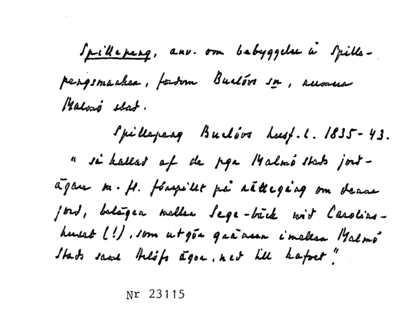 Spillepeng, anv. om bebyggelse å Spille-
pengsmarken, fordom Burlövs sn, numera
Malmö stad.
Spillepeng Burlövs husf. l. 1835-43.
"så kallad af de pga Malmö stads jord-
ägare m. fl. förspillt på rättegång om denna
jord, belägen mellan Sege-bäck wid Carolines-
huset (!), som utgör gränsen imellan Malmö
Stads samt Arlöfs ägor, ned till hafvet".
Nr 23115